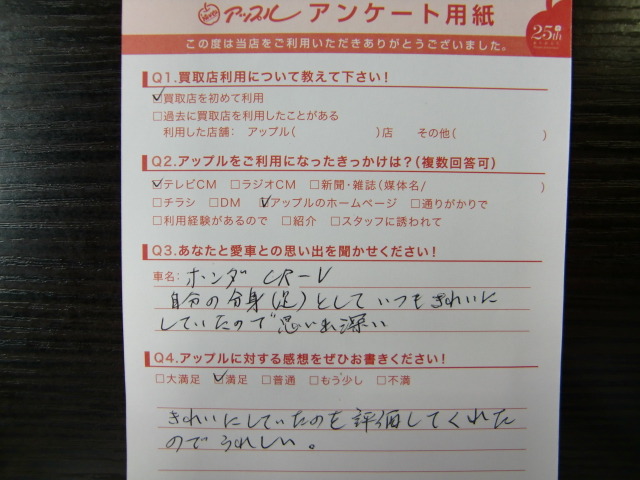 アップル アンケート用紙
この度は当店をご利用いただきありがとうございました。
25th
Q1.買取店利用について教えて下さい!
□買取店を初めて利用
□過去に買取店を利用したことがある
利用した店舗: アップル( )店 その他( )
Q2.アップルをご利用になったきっかけは?(複数回答可)
□テレビCM □ラジオCM □新聞・雑誌(媒体名/ )
□チラシ □DM □アップルのホームページ □通りがかりで
□利用経験があるので □紹介 □スタッフに誘われて
Q3.あなたと愛車との思い出を聞かせください!
車名: ホンダ CR-V
自分の分身(足)としていつもきれいに
していたので思い出深い
Q4.アップルに対する感想をぜひお書きください!
□大満足 □満足 □普通 □もう少し □不満
きれいにしていたのを評価してくれた
のでうれしい。